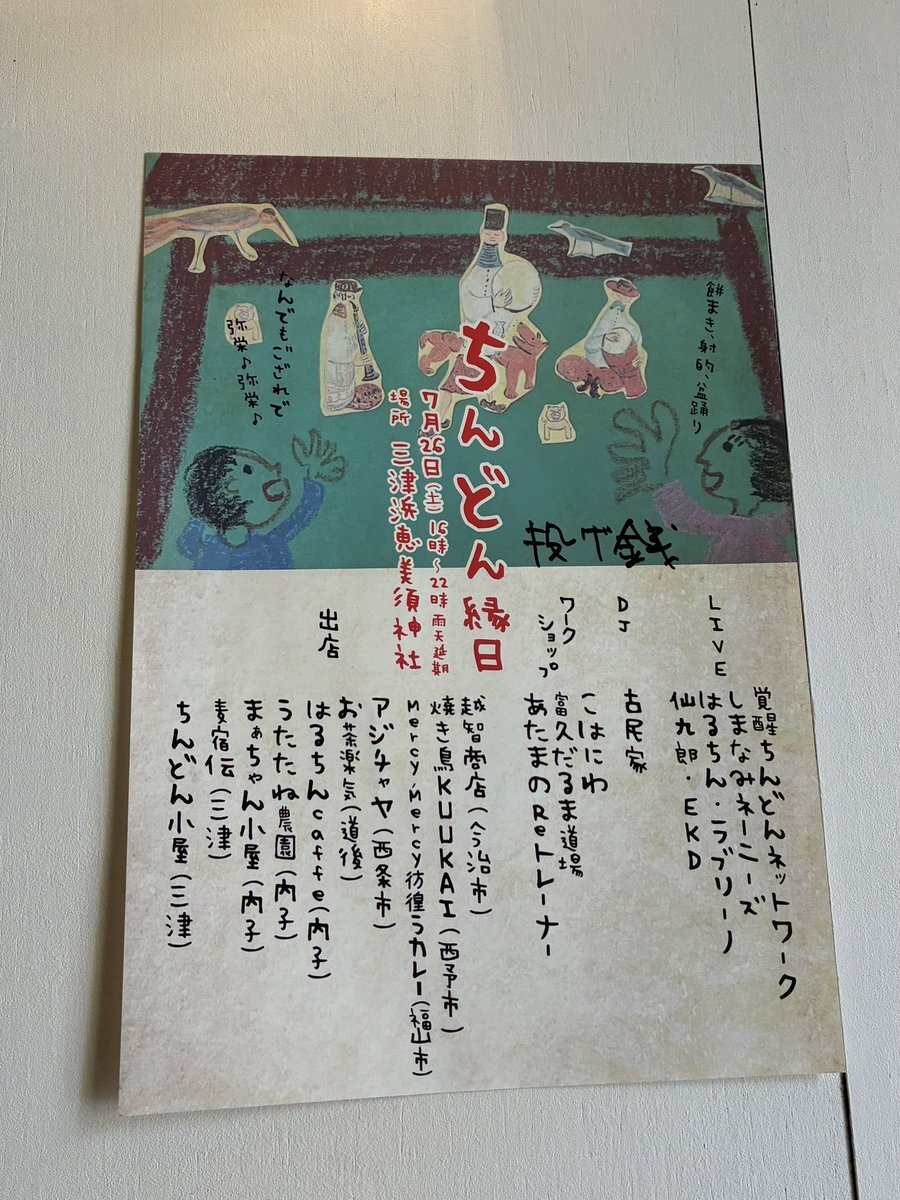 餅まき、射的、盆踊り
ちんどん縁日
7月26日(土)16時〜22時 雨天延期
場所 三津浜恵美須神社
なんでもござれで
弥栄♪弥栄♪
投げ銭
LIVE
覚醒ちんどんネットワーク
しまなみネーニーズ
はるちん・ラブリーノ
仙九郎・EKD
DJ
古民家
ワークショップ
こはにわ
富久だるま道場
あたまのReトレーナー
出店
越智商店(今治市)
焼き鳥KUUKAI(西予市)
Mercy,Mercy彷徨うカレー(福山市)
アジチャヤ(西条市)
お茶楽気(道後)
はるちんcaffe(内子)
うたたね農園(内子)
まぁちゃん小屋(内子)
麦宿伝(三津)
ちんどん小屋(三津)